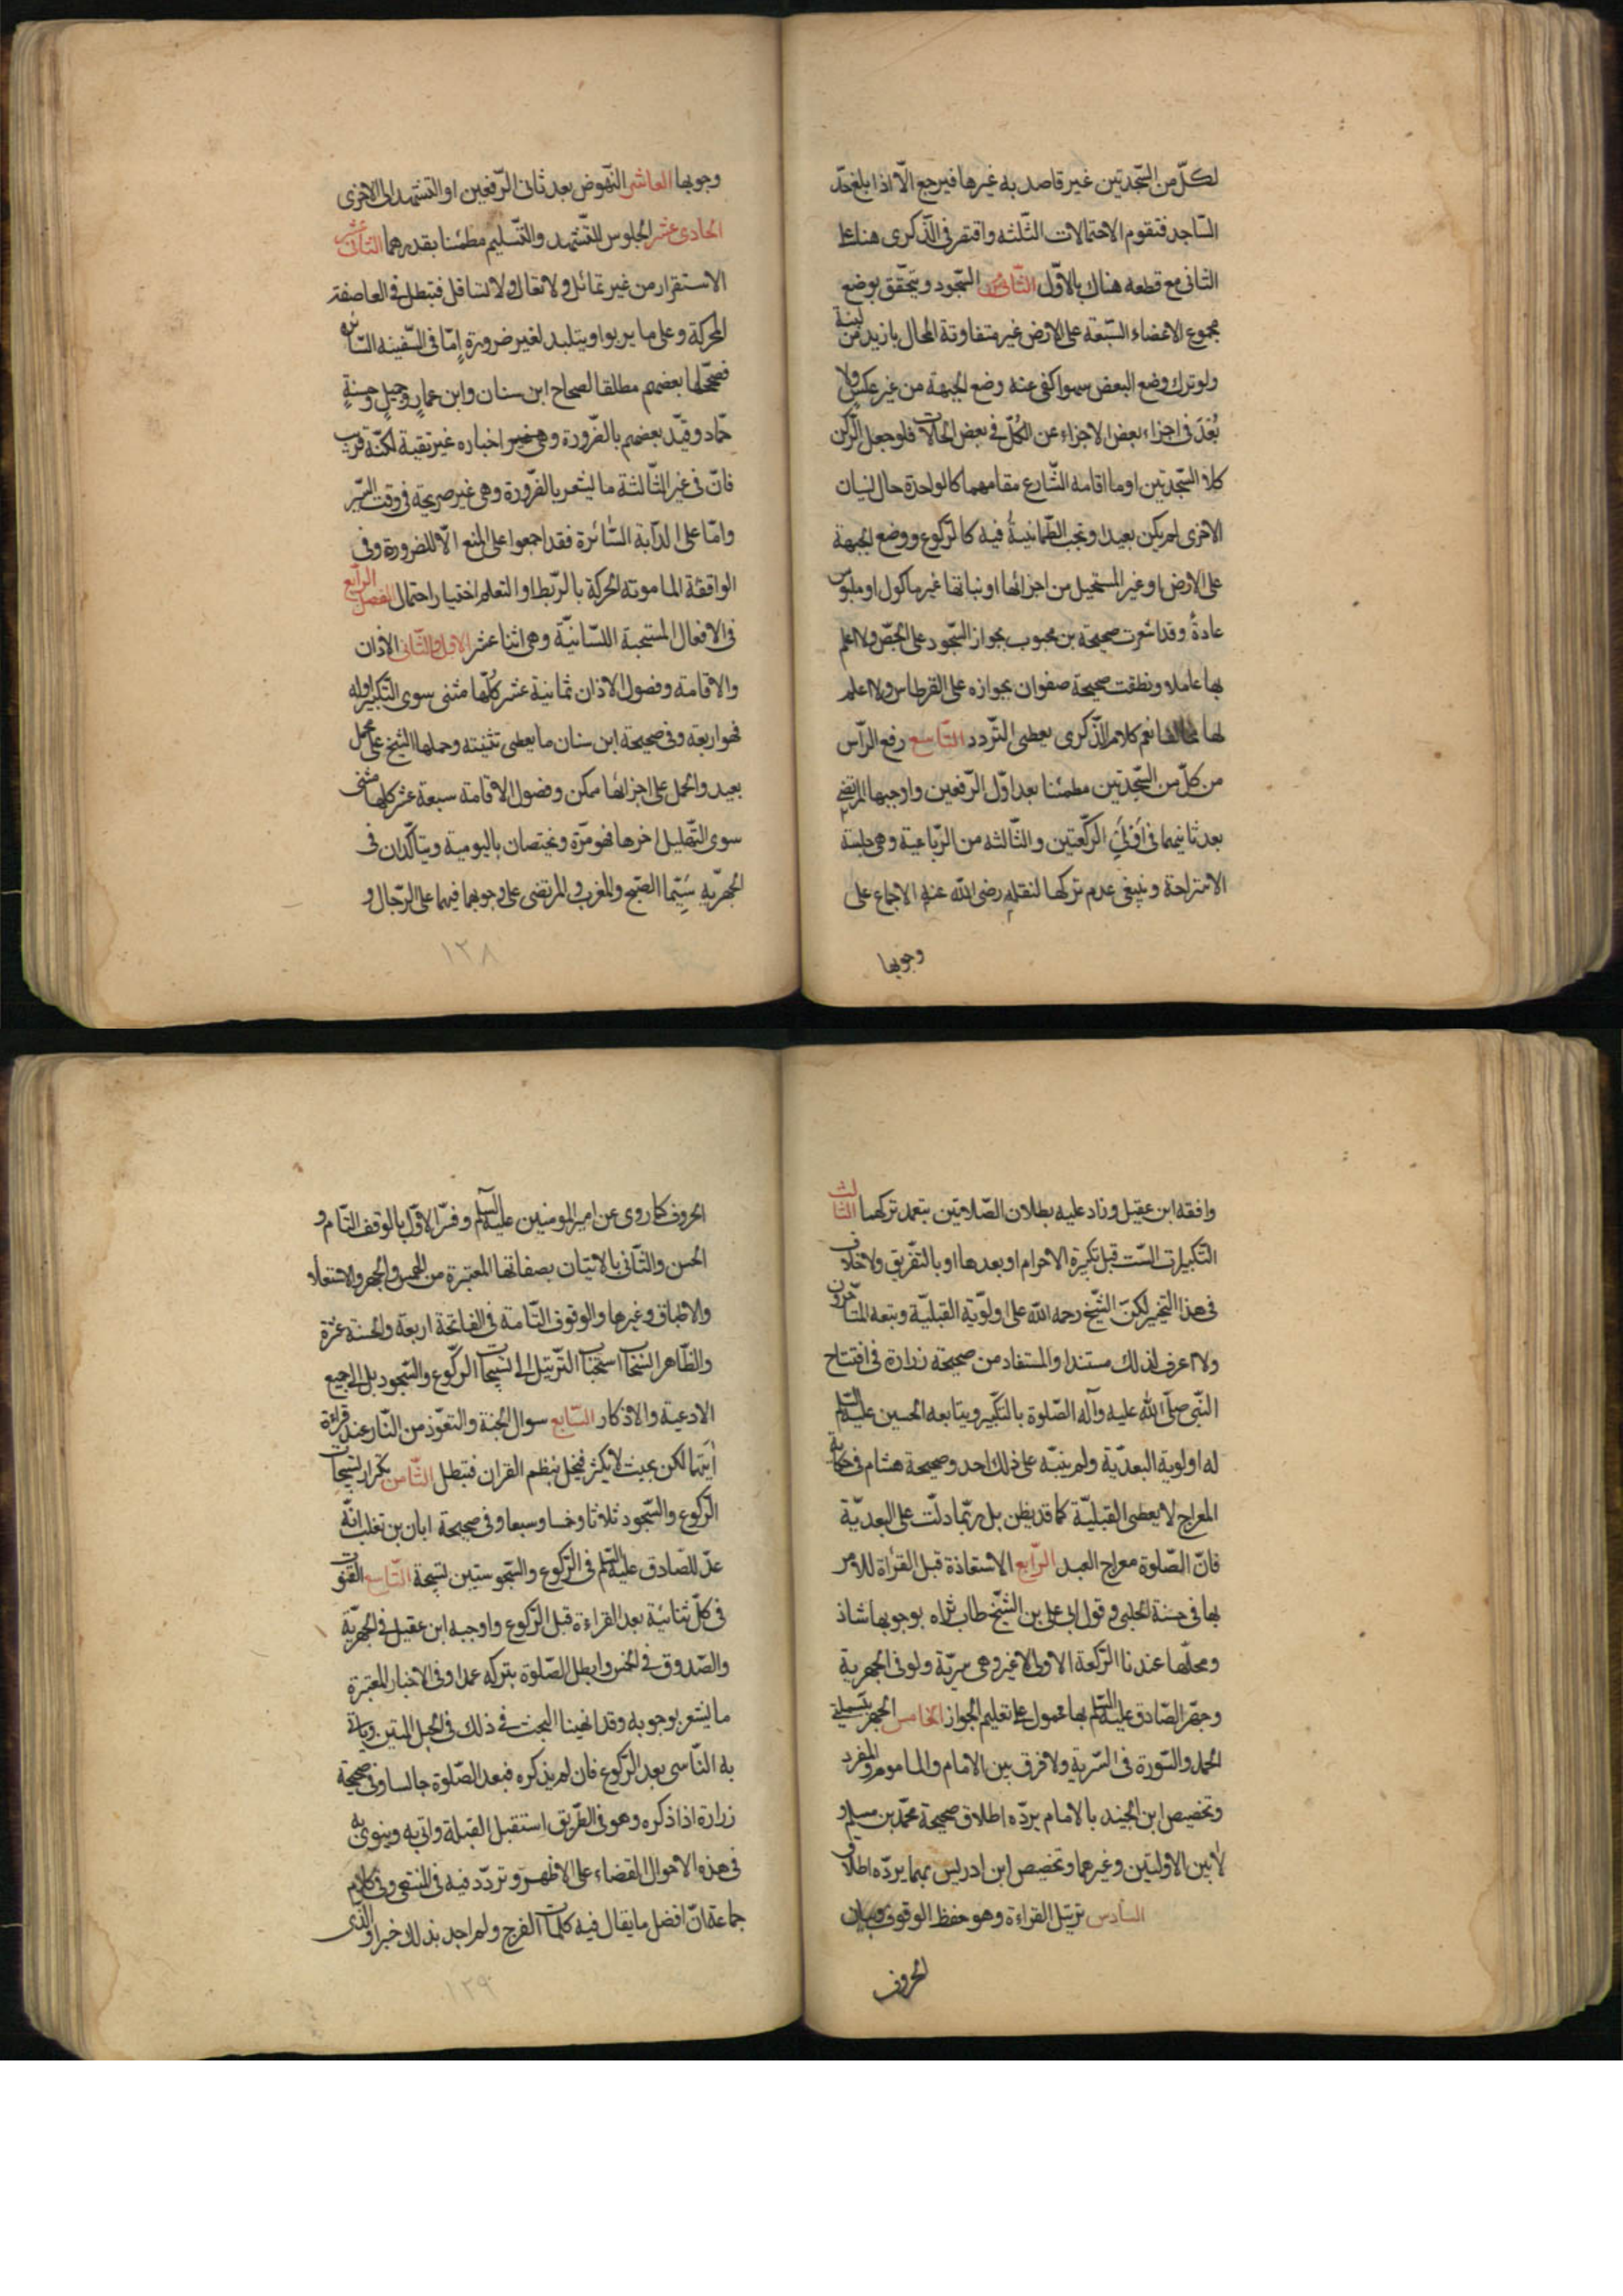 لكلّ من السّجدتين غير قاصد به غيرها فيرجع الّا اذا بلغ حدّ
السّاجد فتقوم الاحتمالات الثّلثه واقتصر فى الذّكرى هناك على
الثانى مع قطعه هناك بالاوّل الثّامن السّجود ويتحقّق بوضع
مجموع الاعضاء السّبعة على الارض غير متفاوتة المحال بازيد من لبنة
ولو ترك وضع البعض سهوا كفى عنه وضع الجبهة من غير عكس ولا
بُعْدَ فى اجزاء بعض الاجزاء عن الكلّ فى بعض الحالات فلو جعل الرّكن
كلا السّجدتين او ما اقامه الشّارع مقامهما كالواحدة حال نسيان
الاخرى لم يكن بعيدا وتجب الطّمانينةُ فيه كالرّكوع ووضع الجبهة
على الارض او غير المستحيل من اجزائها او نباتها غير ماكول او ملبوس
عادةً وقد اشعرت صحيحة بن محبوب بجواز السّجود على الجصّ ولا اعلم
بها عاملا ونطقت صحيحة صفوان بجوازه على القرطاس ولا اعلم
لها مخالفا نعم كلام الذّكرى يعطى التّردد التّاسع رفع الرّأس
من كلّ من السّجدتين مطمئنا بعد اوّل الرّفعين واوجبها المرتضى
بعد ثانيهما فى اُوْلَىَ الركّعتين والثّالثه من الرّباعية وهى جلسة
الاستراحة وينبغى عدم تركها لنقله رضى الله عنه الاجماع على
وجوبها
وجوبها العاشر النّهوض بعد ثانى الرّفعين او التّشهد الى الاخرى
الحادى عشر الجلوس للتّشهد والتّسليم مطمئنا بقدرهما الثانى عشر
الاستقرار من غير تمائل ولا تعال ولا تسافل فتبطل فى العاصفة
المحركة وعلى ما يربوا ويتلبد لغير ضرورة اِمّا فى السّفينه السّائره
فصحّحها بعضهم مطلقا لصحاح ابن سنان وابن عمار وجميل وحسنةِ
حمّاد وقيّد بعضهم بالضّرورة وهى غير اخباره غير نقية لكنّه قريب
فانّ فى غير الثّالثة ما يشعر بالضّرورة وهى غير صريحة فى وقت السّير
وامّا على الدّابة السّائرة فقد اجمعوا على المنع الّا للضرورة وفى
الواقفة المامونة الحركة بالرّبط او التعلم اختيارا احتمال الفصل الرّابع
فى الافعال المستحبة اللسّانيّة وهى اثنا عشر الاول والثّانى الاذان
والاقامة وفصول الاذان ثمانية عشر كلّها مثنى سوى التّكبير اوله
فهو اربعة وفى صحيحة ابن سنان ما يعطى تثنيته وحملها الشيخ على محمل
بعيد والحمل على اجزائها ممكن وفصول الاقامة سبعة عشر كلها مثنى
سوى التّهليل اخرها فهو مرّة ويختصان باليومية ويتأكّدان فى
الجهريّه سِيّما الصّبح والمغرب والمرتضى على وجوبهما فيهما على الرّجال و
١٣٨
وافقه ابن عقيل وزاد عليه بطلان الصّلاتين بتعمد تركهما الثالث
التّكبيرات السّت قبل تكبيرة الاحرام او بعدها او بالتفّريق ولا خلاف
فى هذا التخيير لكنّ الشّيخ رحمه الله على اولوّية القبليّة وتبعه المتأخّرون
ولا اعرف لذلك مستندا والمستفاد من صحيحة زرارة فى افتتاح
النّبى صلّى الله عليه وآله الصّلوة بالتكّبير ويتابعه الحسين عليه السّلم
له اولوية البعديّة ولم ينبّه على ذلك احد وصحيحة هشام فى حكاية
المعراج لا يعطى القبليّة كما قد يظن بل ربّما دلّت على البعديّة
فانّ الصّلوة معراج العبد الرّابع الاستعاذة قبل القرأة للامر
بها فى حسنة الحلبى وقول ابى على بن الشيّخ طاب ثراه بوجوبها شاذ
ومحلّها عندنا الرّكعة الاولى لا غير وهى سريّة ولو فى الجهرية
وجهر الصّادق عليه السّلم بها محمول على تعليم الجواز الخامس الجهر ببسملتى
الحمد والسّورة فى السّرية ولا فرق بين الامام والماموم والمنفرد
وتخصيص ابن الجنيد بالامام يردّه اطلاق صحيحة محمّد بن مسلم و
لا بين الاوليّين وغيرهما وتخصيص ابن ادريس بهما يردّه اطلاق
السادس ترتيل القراءة وهو حفظ الوقوف وبيان
الحروف
الحروف كما روى عن امير المومنين عليه السلّم وفسّر الاوّل بالوقف التّام و
الحسن والثّانى بالاتيان بصفاتها المعتبرة من الهمس والجهر والاستعلاء
والاطباق وغيرها والوقوف التّامة فى الفاتحة اربعة والحسنة عشرة
والظّاهر استحباب الترّتيل الى تسبيحات الرّكوع والسّجود بل الى جميع
الادعية والاذكار السّابع سوال الجنة والتعوّذ من النّار عند قراءة
اٰيتهما لكن بحيث لا يكثر فيخل بنظم القران فتبطل الثّامن تكرار تسبيحات
الرّكوع والسّجود ثلاثا وخمسا وسبعا وفى صحيحة ابان بن تغلب انّه
عدّ للصّادق عليه السّلم فى الرّكوع والسّجود ستّين تسبيحة التّاسع القنوت
فى كلّ ثنائيّة بعد القراءة قبل الرّكوع واوجبه ابن عقيل فى الجهريّة
والصّدوق فى الخمس وابطل الصّلوة بتركه عمدا وفى الاخبار المعتبرة
ما يشعر بوجوبه وقد انهينا البحث فى ذلك فى الحبل المتين وياتى
به النّاسى بعد الرّكوع فان لم يذكره فبعد الصّلوة جالسا وفى صحيحة
زرارة اذا ذكره وهو فى الطّريق استقبل القبلة واتى به وينوى به
فى هذه الاحوال القضاء على الاظهر وتردّد فيه فى المنتهى وفى كلام
جماعة انّ افضل ما يقال فيه كلمات الفرج ولم اجد بذلك خبرا والذى
١٣٩